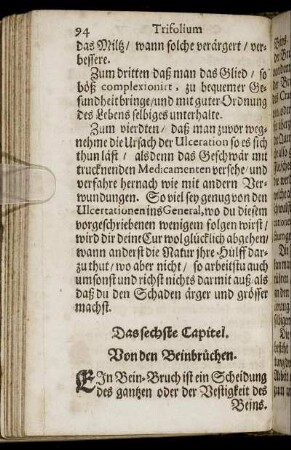 94 Trifolium
das Miltz / wann solche verärgert / ver-
bessere.
Zum dritten daß man das Glied / so
böß complexionirt, zu bequemer Ge-
sundheit bringe / und mit guter Ordnung
des Lebens selbiges unterhalte.
Zum vierdten / daß man zuvor weg-
nehme die Ursach der Ulceration so es sich
thun läst / als denn das Geschwär mit
trucknenden Medicamenten versehe / und
verfahre hernach wie mit andern Ver-
wundungen. So viel sey genug von den
Ulcertationen ins General, wo du diesem
vorgeschriebenen wenigem folgen wirst /
wird dir deine Cur wol glücklich abgehen /
wann anderst die Natur jhre Hülff dar-
zu thut / wo aber nicht / so arbeitstu auch
umsonst und richst nichts darmit auß als
daß du den Schaden ärger und grösser
machst.
Das sechste Capitel.
Von den Beinbrüchen.
EIn Bein-Bruch ist ein Scheidung
des gantzen oder der Vestigkeit des
Beins.